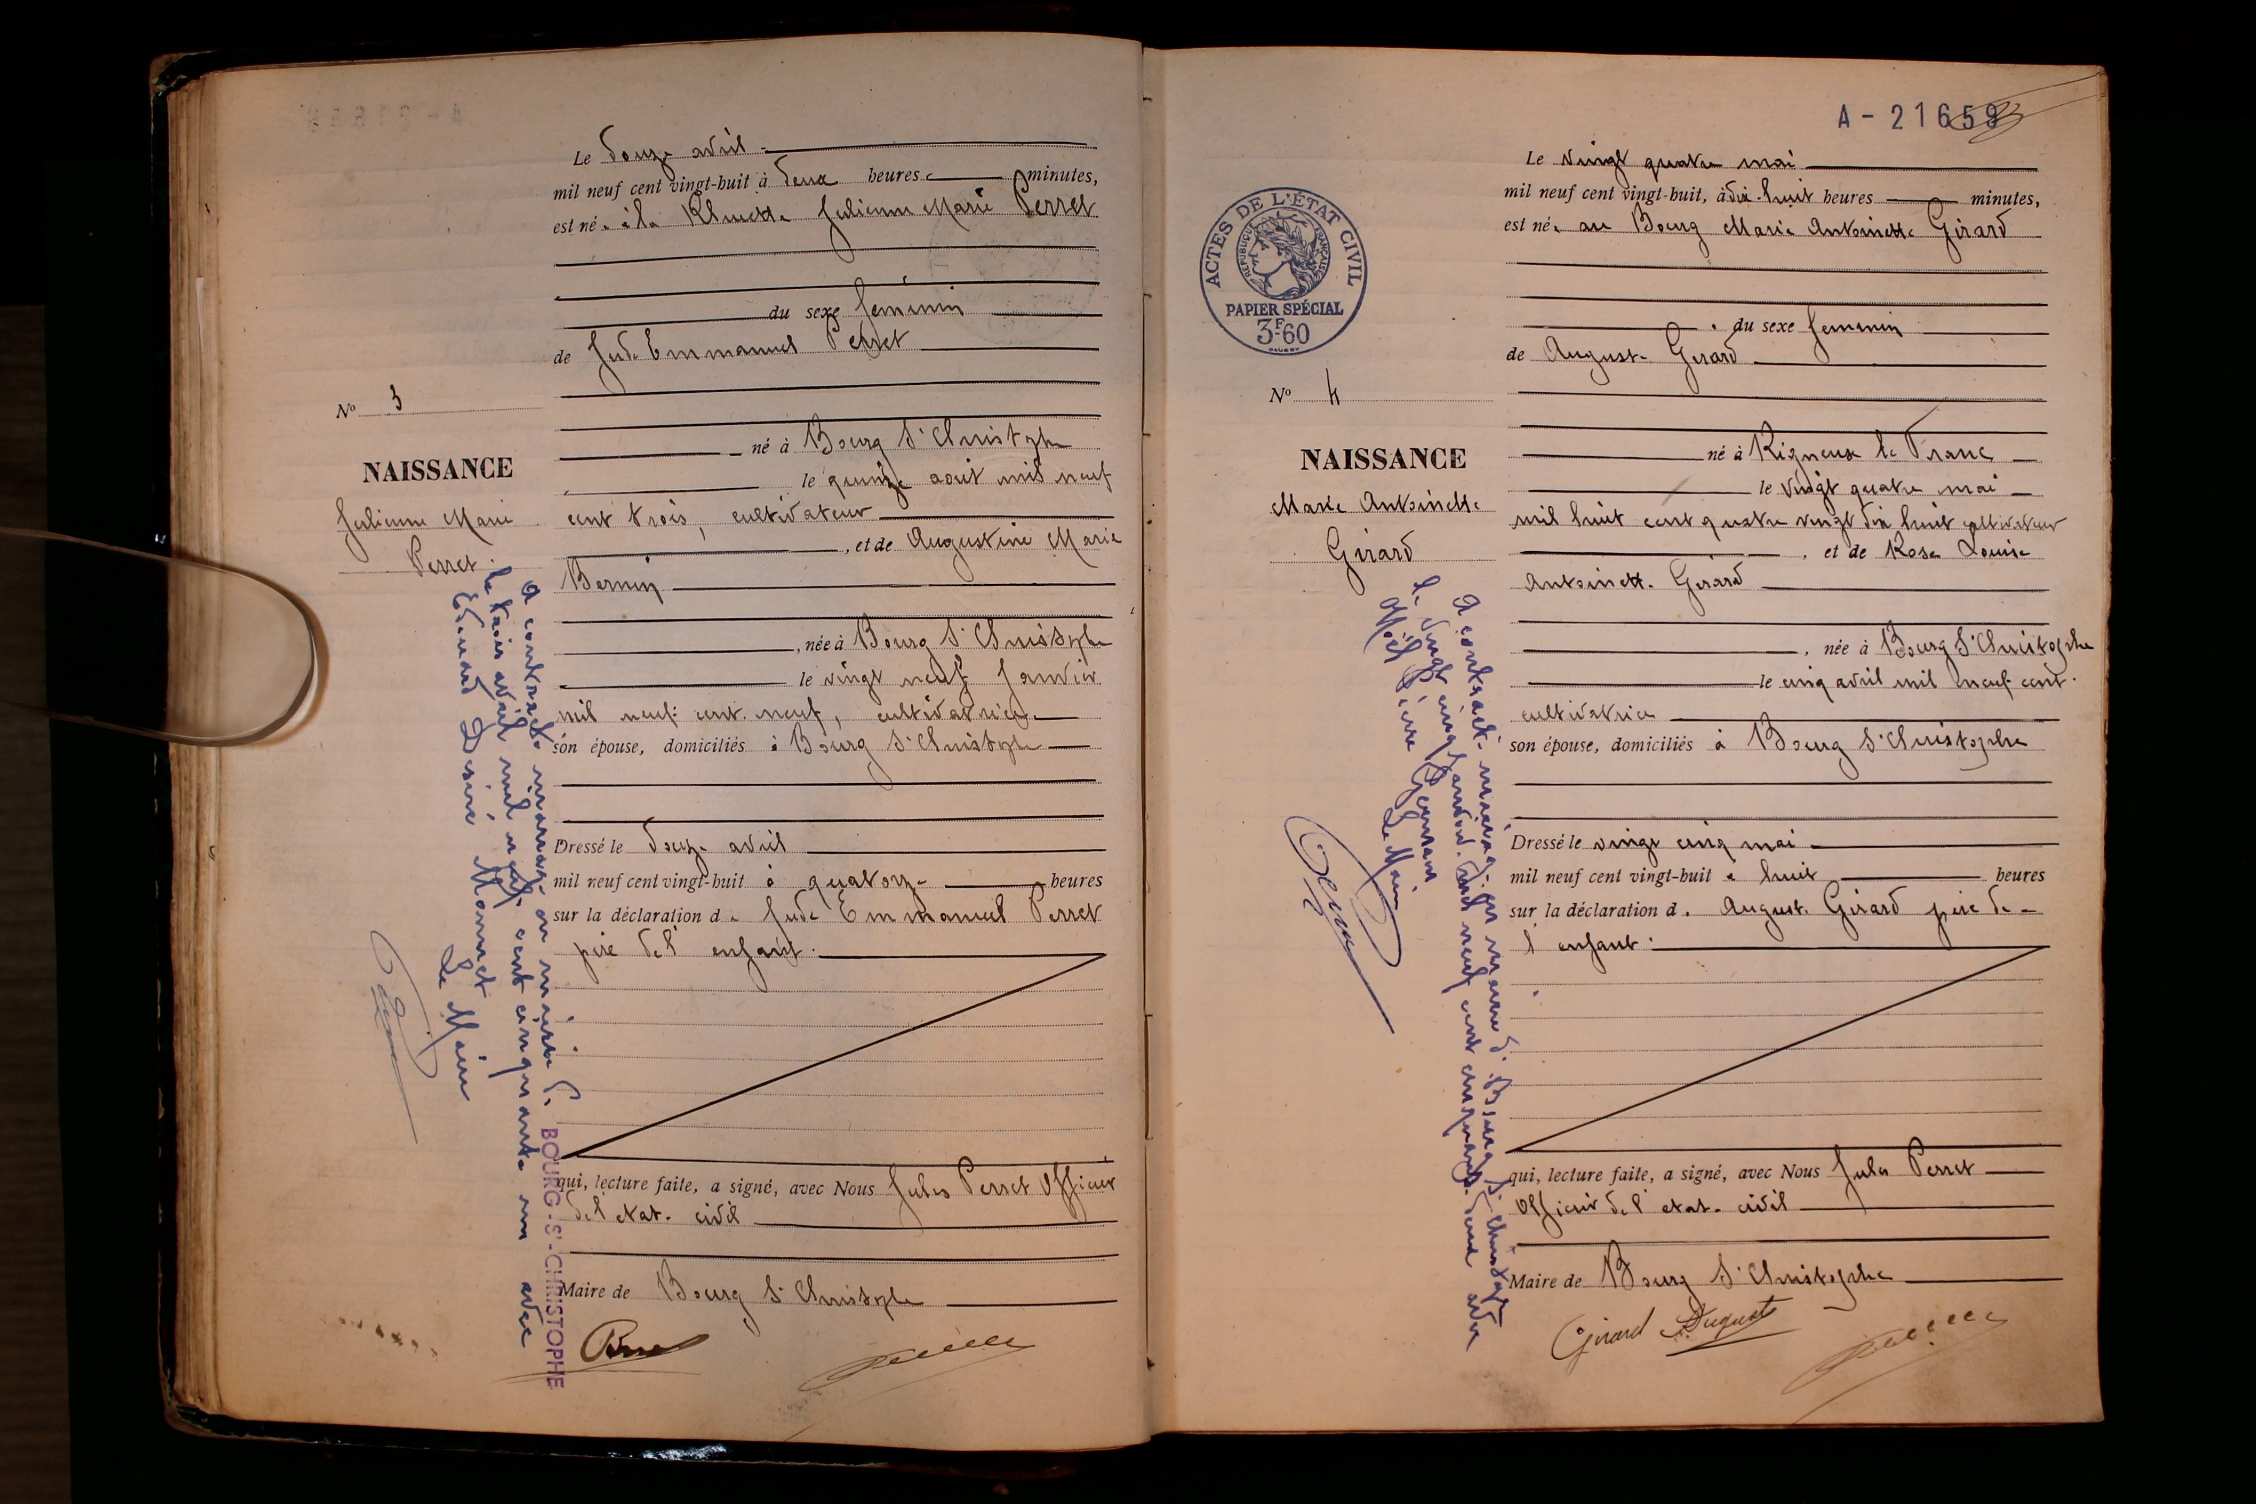 Le douze avril
mil neuf cent vingt-huit à deux heures minutes,
est née à la Julienne Marie Perret
du sexe féminin
de Jude Emmanuel Perret
né à Bourg St Christophe
le quinze aout mil neuf
cent trois, cultivateur
, et de Augustine Marie
Bernin
, née à Bourg St Christophe
le vingt neuf Janvier
mil neuf cent neuf, cultivatrice
son épouse, domiciliés à Bourg St Christophe
Dressé le douze avril
mil neuf cent vingt-huit à quatorze heures
sur la déclaration de Jude Emmanuel Perret
père de l'enfant.
qui, lecture faite, a signé, avec Nous Jules Perret Officier
de l'etat-civil
Maire de Bourg St Christophe
No 3
NAISSANCE
Julienne Marie
Perret
a contracté mariage en mairie de BOURG-St-CHRISTOPHE
le trois avril mil neuf cent cinquante un avec
Edouard Désiré Monnet
Le Maire
A-21659
Le vingt quatre mai
mil neuf cent vingt-huit, à dix-huit heures minutes,
est née au Bourg Marie Antoinette Girard
du sexe feminin
de Auguste Girard
né à Rigneux le Franc
le vingt quatre mai
mil huit cent quatre vingt dix huit cultivateur
, et de Rose Louise
Antoinette Girard
, née à Bourg St Christophe
le cinq avril mil neuf cent
cultivatrice
son épouse, domiciliés à Bourg St Christophe
Dressé le vingt cinq mai
mil neuf cent vingt-huit à huit heures
sur la déclaration de Auguste Girard père de
l'enfant.
qui, lecture faite, a signé, avec Nous Jules Perret
Officier de l'etat-civil
Maire de Bourg St Christophe
Girard Auguste
ACTES DE L'ÉTAT CIVIL
RÉPUBLIQUE FRANÇAISE
PAPIER SPÉCIAL
3F60
No 4
NAISSANCE
Marie Antoinette
Girard
a contracté mariage en mairie de Bourg St Christophe
le vingt cinq Janvier mil neuf cent cinquante deux avec
Noël Pierre
Le Maire